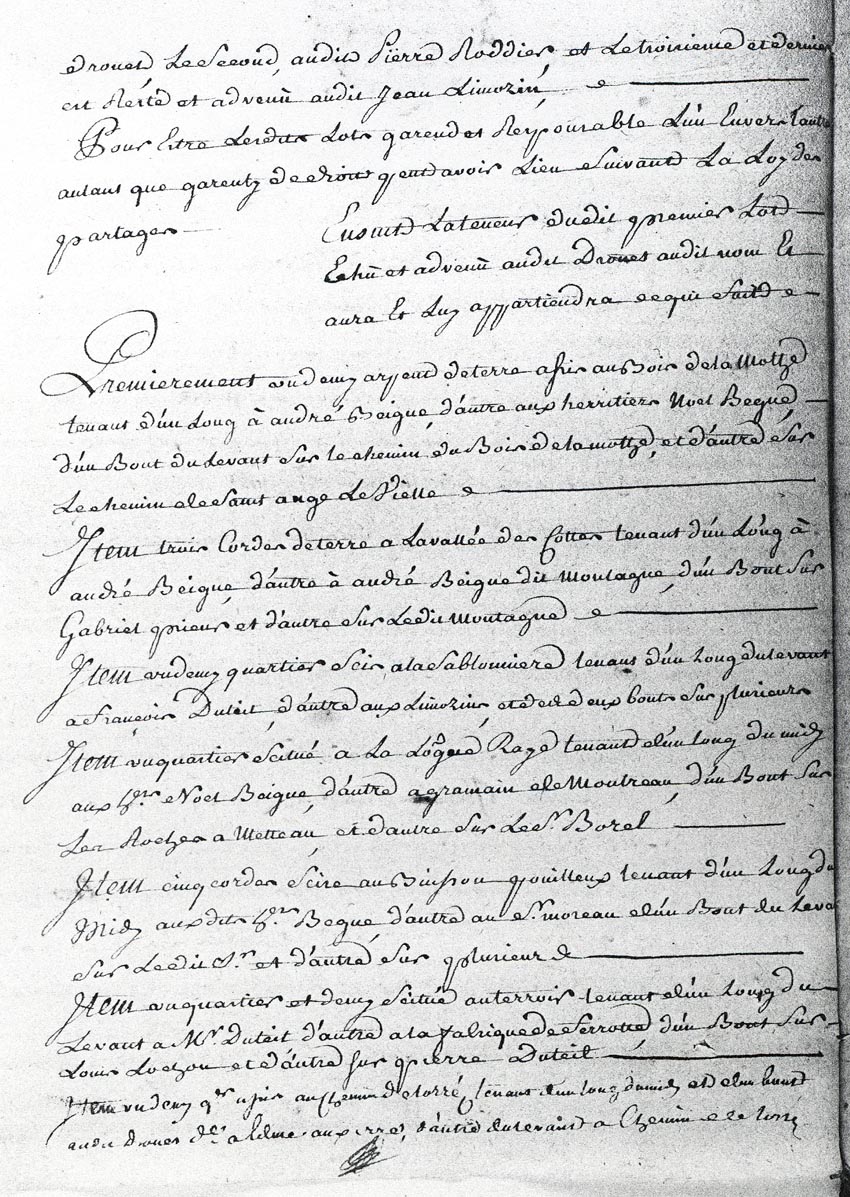 drouet Le Second, audit Pierre Roddier et Le troisieme et dernier
est Resté et advenu audit Jean Limozin
Pour Estre Lesdits Lots garend et Responsable L'un Envers L'autre
autant que garentz de droit peut avoir Lieu Suivant La Loy des
partages
Ensuit La teneur dudit premier Lot
Echu et advenu audit Drouet audit nom Et
aura Et Luy appartiendra ce qui suit
Premierement un demy arpent de terre assis au Bois de la Motte
tenant d'un Long à andré Beigue, d'autre aux herritiers Noel Begue
d'un Bout du Levant sur le chemin du Bois de la motte, et d'autre sur
Le chemin de Saint ange Le Vielle
Item trois Cordes de terre a La vallée des Cottes tenant d'un Long à
andré Beigue, d'autre à andré Beigue dit Montagne, d'un Bout sur
Gabriel prieur et d'autre sur Ledit Montagne
Item un demy quartier scis a la Sablonniere tenant d'un Long du levant
a françois Duteil, d'autre aux Limozins, et des deux bouts sur plusieurs
Item un quartier scitué a La Raye tenant d'un long du midy
aux Noel Beigue, d'autre a gramain de Montreau, d'un Bout sur
Les Roches a Metteau, et d'autre sur Le Sr. Borel
Item cinq cordes scise au Buisson pouilleux tenant d'un Long du
Midy aux dits Begue, d'autre au Sr. moreau d'un Bout du Leva
sur Ledit Sr. et d'autre sur plusieur
Item un quartier et demy scitué au terroir tenant d'un Long du
Levant a Mr. Duteil d'autre a la fabrique de d'un Bout sur
Louis Luchon et d'autre sur pierre Duteil
Item un demy assis au chemin de tenant d'un long du midy et d'un bout
audit Drouet d'autre du levant a Chemin de